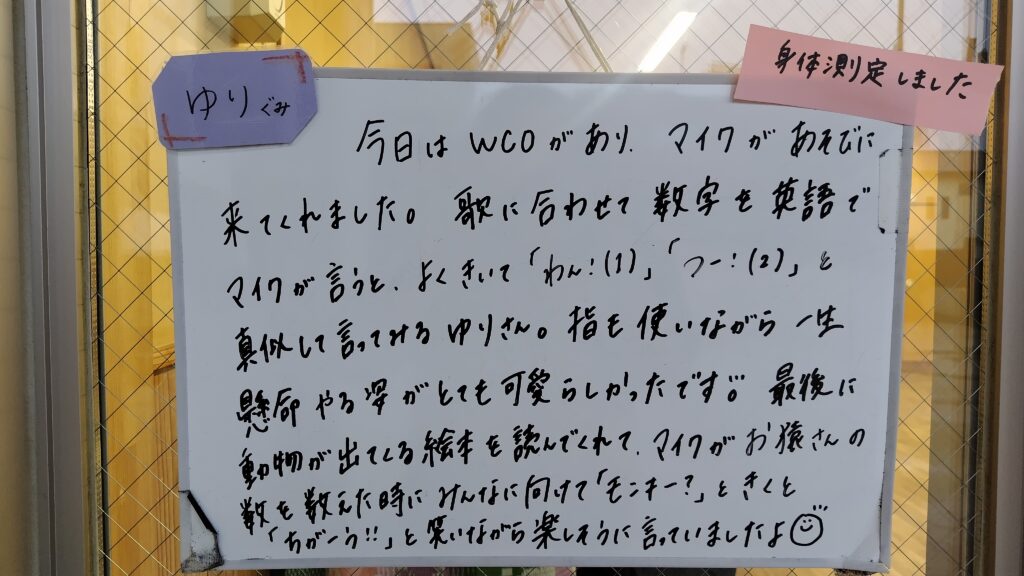 ゆりぐみ
身体測定しました
今日はWCOがあり、マイクがあそびに
来てくれました。歌に合わせて数字を英語で
マイクが言うと、よくきいて「わん!(1)」「つー!(2)」と
真似して言ってみるゆりさん。指を使いながら一生
懸命やる姿がとても可愛らしかったです。最後に
動物が出てくる絵本を読んでくれて、マイクがお猿さんの
数を数えた時にみんなに向けて「モンキー?」ときくと
「ちがーう!!」と笑いながら楽しそうに言っていましたよ